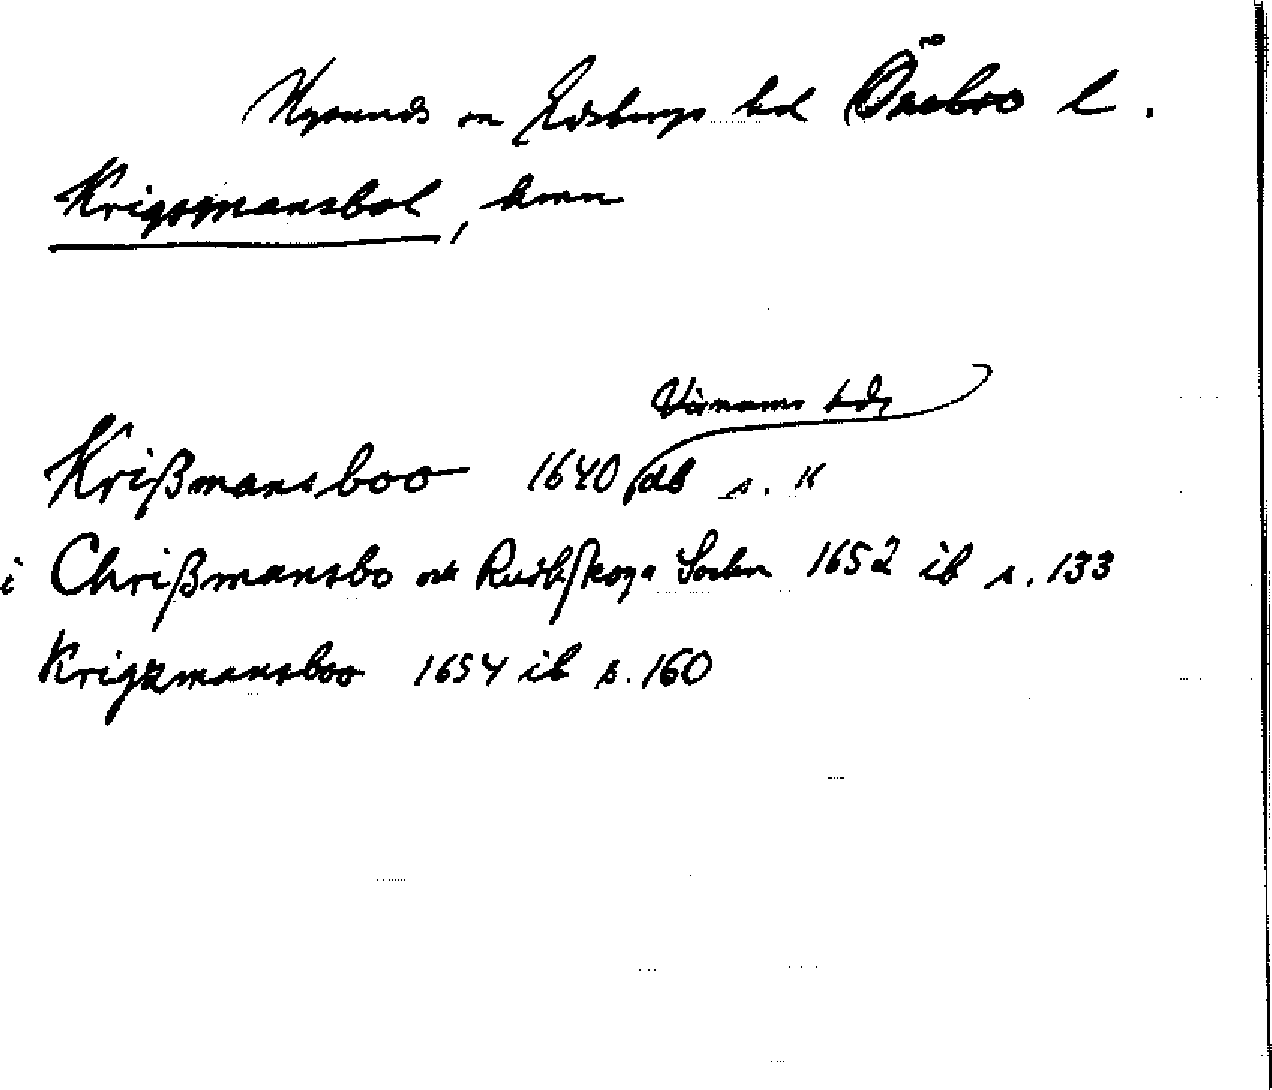 Nysunds sn Edsbergs hd Örebro l.
Krigsmansbol, hmn
Visnums hds
Krißmansboo 1640 db s. 11
i Chrißmansbo och Rudskoga Sochn 1652 ib s. 133
Krigzmansboo 1654 ib s. 160